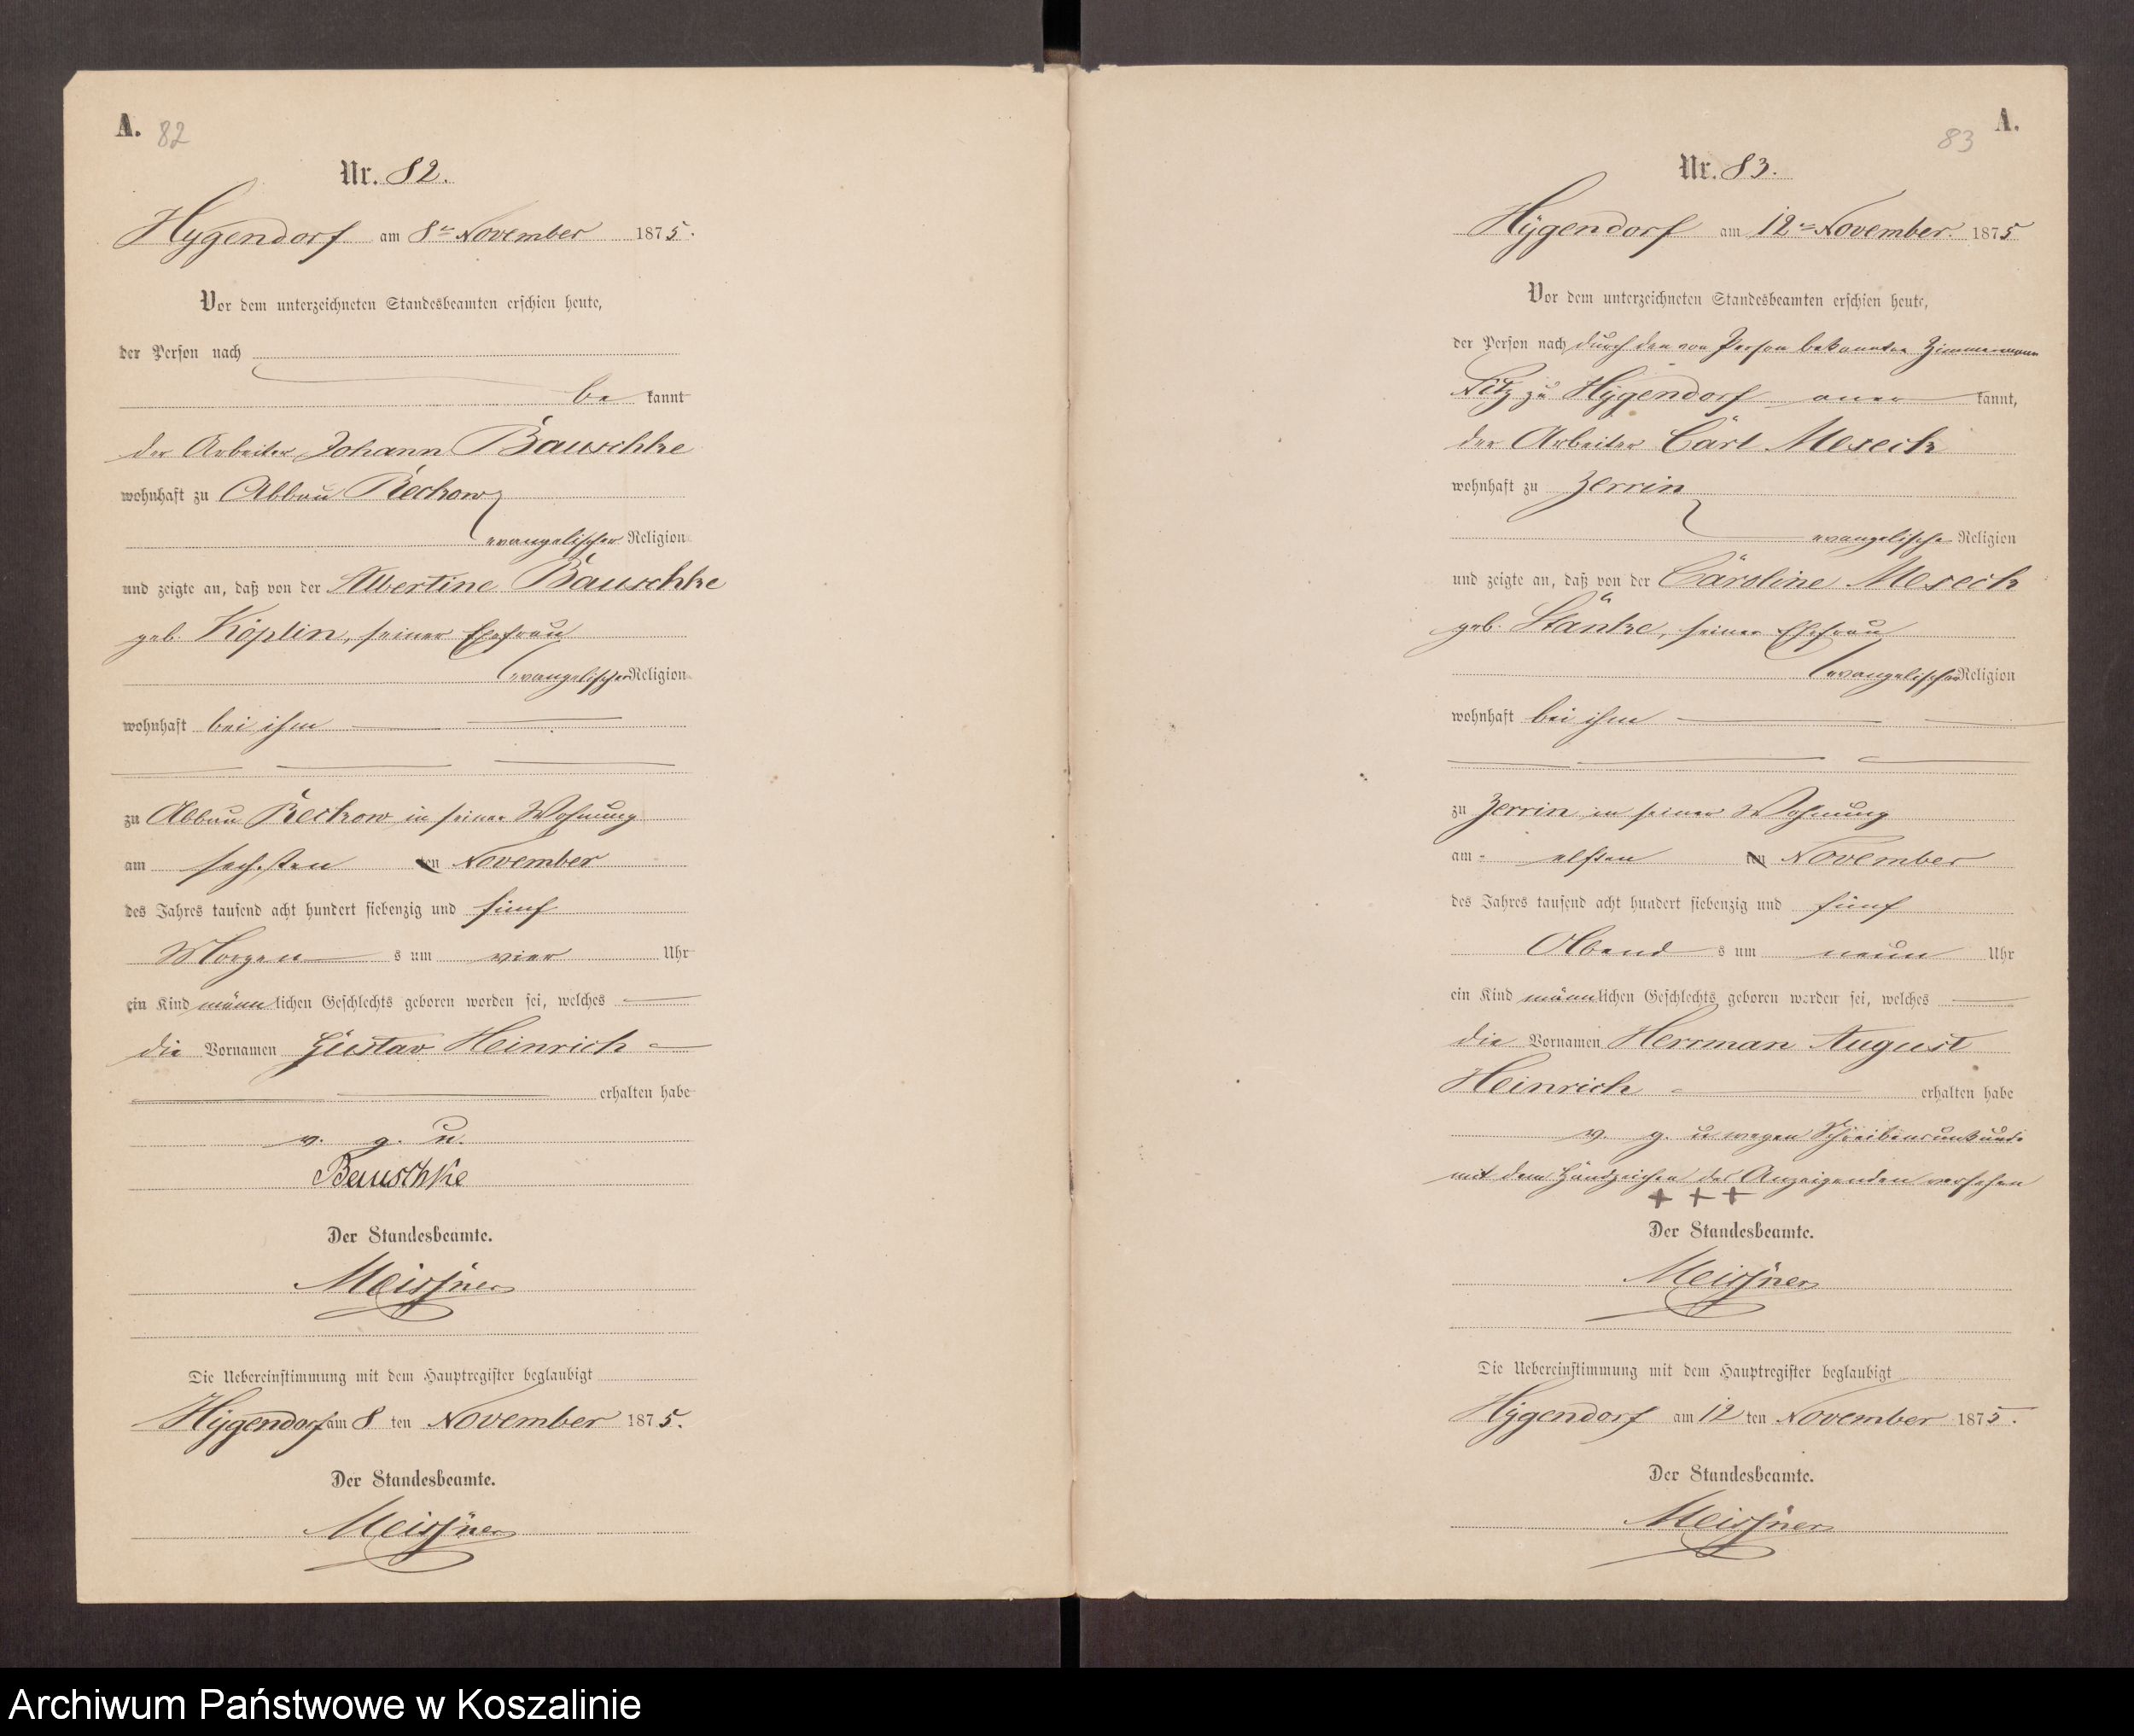 A. 82
Nr. 82.
Hygendorf am 8ten November 1875.
Vor dem unterzeichneten Standesbeamten erschien heute,
der Person nach
be kannt
der Arbeiter Johann Bauschke
wohnhaft zu Abbau Reckow
evangelischer Religion
und zeigte an, daß von der Albertine Bauschke
geb. Köplin, seiner Ehefrau
evangelischer Religion
wohnhaft bei ihm
zu Abbau Reckow in seiner Wohnung
am sechsten ten November
des Jahres tausend acht hundert siebenzig und fünf
Morgen s um vier Uhr
ein Kind männlichen Geschlechts geboren worden sei, welches
die Vornamen Gustav Heinrich
erhalten habe
v. g. u.
Bauschke
Der Standesbeamte.
Meissner
Die Uebereinstimmung mit dem Hauptregister beglaubigt
Hygendorf am 8 ten November 1875.
Der Standesbeamte.
Meissner
A.
83
Nr. 83.
Hygendorf am 12ten November 1875
Vor dem unterzeichneten Standesbeamten erschien heute,
der Person nach durch den von Person bekannten Zimmermann
zu Hygendorf aner kannt,
der Arbeiter Carl Meseck
wohnhaft zu Zerrin
evangelische Religion
und zeigte an, daß von der Caroline Meseck
geb. Stänke, seiner Ehefrau
evangelischer Religion
wohnhaft bei ihm
zu Zerrin in seiner Wohnung
am elften ten November
des Jahres tausend acht hundert siebenzig und fünf
Abend s um neun Uhr
ein Kind männlichen Geschlechts geboren worden sei, welches
die Vornamen Herrman August
Heinrich erhalten habe
v. g. u wegen Schreibensunkunde
mit dem Handzeichen des Anzeigenden versehen
+ + +
Der Standesbeamte.
Meissner
Die Uebereinstimmung mit dem Hauptregister beglaubigt
Hygendorf am 12 ten November 1875.
Der Standesbeamte.
Meissner
Archiwum Państwowe w Koszalinie